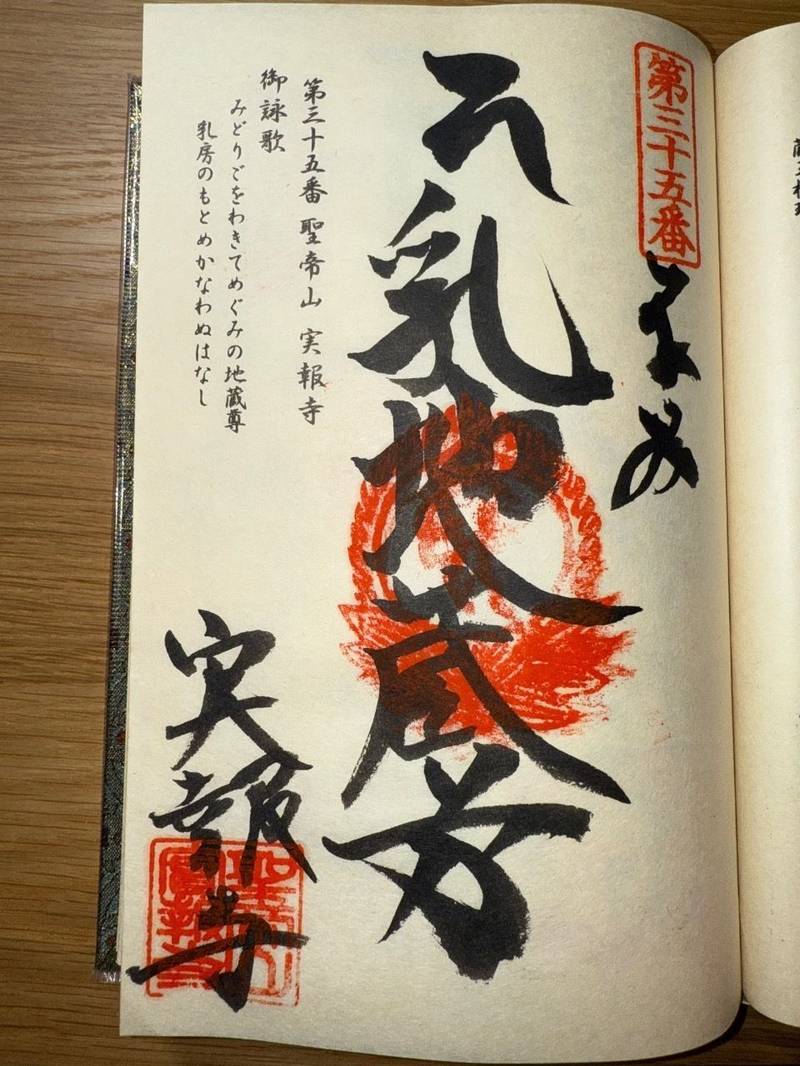 第三十五番
乳地蔵尊
第三十五番 聖帝山 実報寺
御詠歌
みどりごをわきてめぐみの地蔵尊
乳房のもとめかなわぬはなし
実報寺